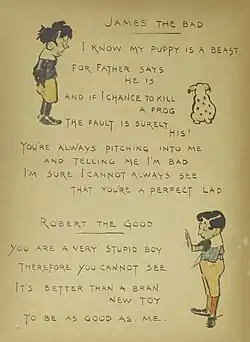 James the Bad
I know my puppy is a beast
for Father says
he is
and if I chance to kill
a frog
the fault is surely
his!
You're always pitching into me
and telling me I'm bad
I'm sure I cannot always see
that you're a perfect lad
Robert the Good
You are a very stupid boy
Therefore you cannot see
It's better than a bran
new toy
To be as good as. me.